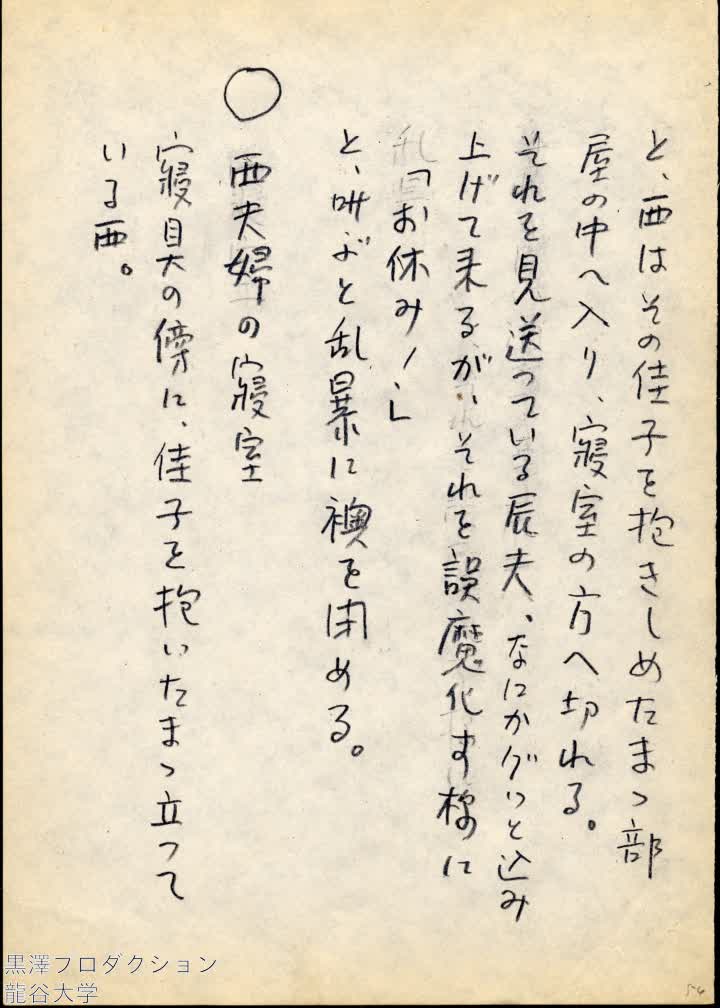 と、西はその佳子を抱きしめたまゝ部
屋の中へ入り、寝室の方へ切れる。
それを見送っている辰夫、なにかグッと込み
上げて来るが、それを誤魔化す様に
「お休み！」
と、叫ぶと乱暴に襖を閉める。
○
西夫婦の寝室
寝具の傍に、佳子を抱いたまゝ立って
いる西。
黒澤プロダクション
龍谷大学